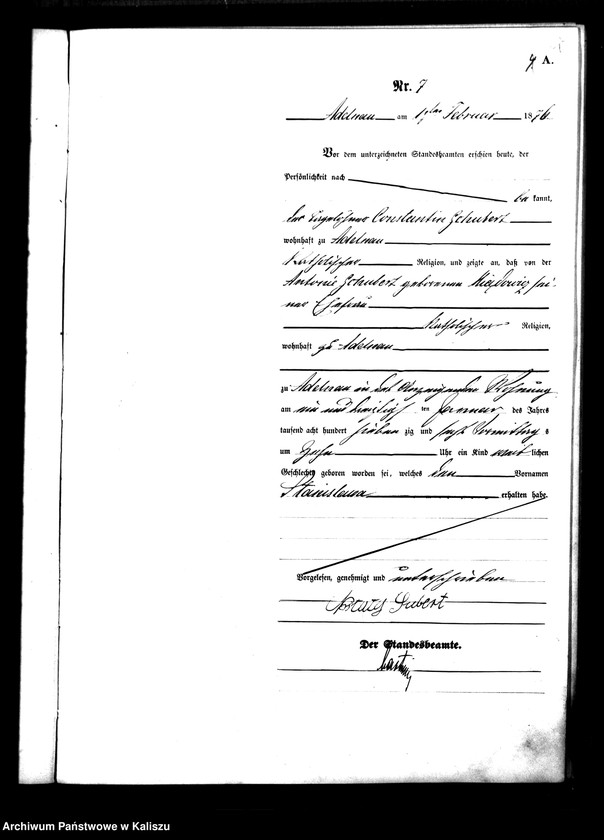 7 A.
Nr. 7
Adelnau am 1ten Februar 1876
Vor dem unterzeichneten Standesbeamten erschien heute, der
Persönlichkeit nach
be kannt,
der Constantin Schubert
wohnhaft zu Adelnau
katholischer Religion, und zeigte an, daß von der
Antonie Schubert geborenen sei-
ner Ehefrau
katholischer Religion,
wohnhaft zu Adelnau
zu Adelnau in des Anzeigenden Wohnung
am ein und dreißigsten Januar des Jahres
tausend acht hundert sieben zig und sechs Vormittag s
um zehn Uhr ein Kind weib lichen
Geschlechts geboren worden sei, welches den Vornamen
Stanislawa erhalten habe.
Vorgelesen, genehmigt und unterschrieben
Subert
Der Standesbeamte.
Archiwum Państwowe w Kaliszu